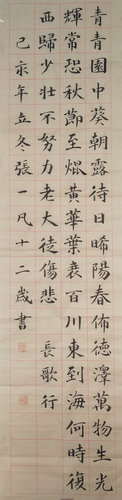 青青園中葵朝露待日晞陽春佈德澤萬物生光
輝常恐秋節至焜黃華葉衰百川東到海何時復
西歸少壯不努力老大徒傷悲 長歌行
己亥年立冬張一凡十二歲書